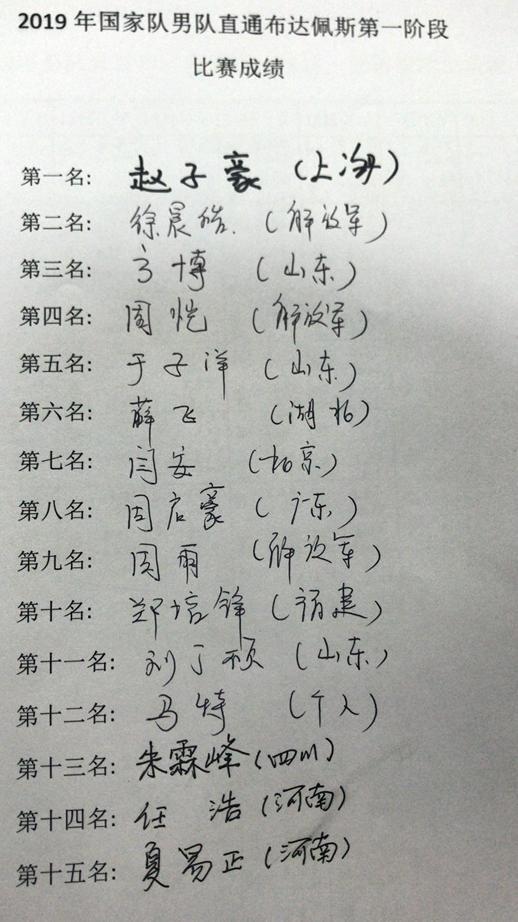 2019 年国家队男队直通布达佩斯第一阶段
比赛成绩
第一名: 赵子豪 (上海)
第二名: 徐晨皓. (解放军)
第三名: 方博 (山东)
第四名: 周恺 (解放军)
第五名: 于子洋 (山东)
第六名: 薛飞 (湖北)
第七名: 闫安 (北京)
第八名: 周启豪 (广东)
第九名: 周雨 (解放军)
第十名: 郑培锋 (福建)
第十一名: 刘丁硕 (山东)
第十二名: 马特 (个人)
第十三名: 朱霖峰 (四川)
第十四名: 任浩 (河南)
第十五名: 夏易正 (河南)